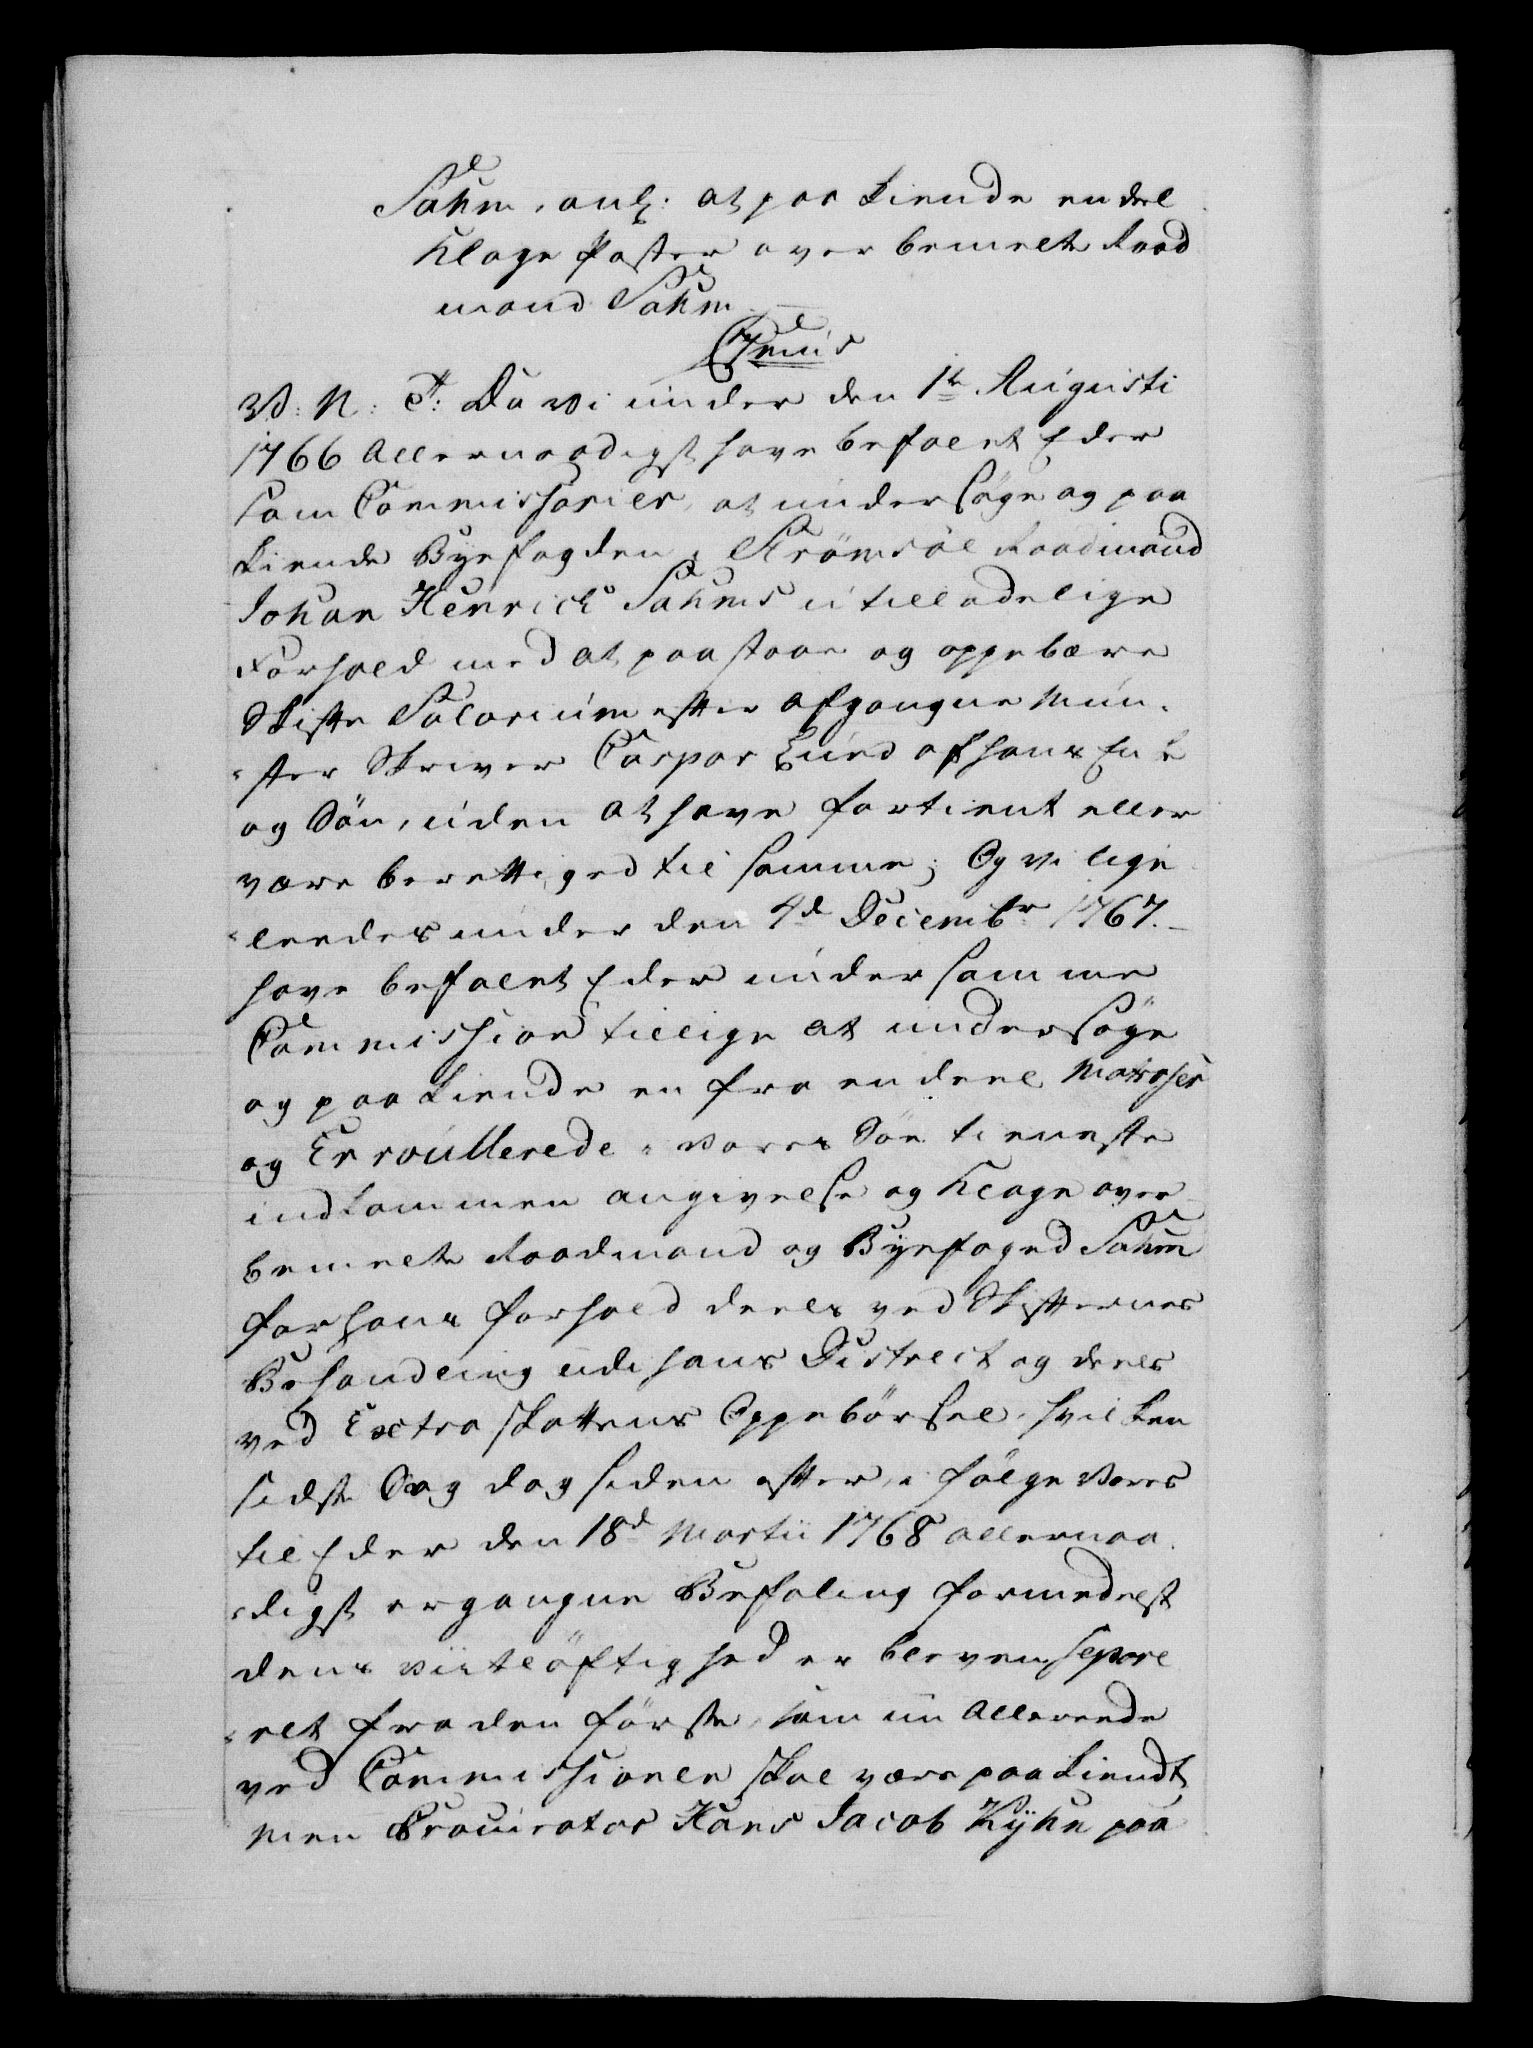 Sahm, anl: at paa kiende en deel
Klage Poster over bemelte Raad
mand Sahm.
C7mus
V: N: T: Da vi under den 1te Augusti
1766 Allernaadigst have befalet Eder
som Commissarier, at undersøge og paa
kiende Byefogden i Strømsøe Raadmand
Johan Henrich Sahms utilladelige
Forhold med at paastaae og oppebære
Skifte Salarium efter afgangne Mün-
-ster Skriver Caspar Lund af hans Enke
og Søn, uden at have fortient eller
være berettiged til samme; Og vi lige
-leedes under den 4de Decembr 1767.
have befalet Eder under samme
Commission tillige at undersøge
og paakiende en fra en deel Matroser
og Enroullerede i vores Søe tieneste
indkommen angivelse og Klage over
bemelte Raadmand og Byefoged Sahm
for hans forhold deels ved Skifternes
Behandling udi hans District og deels
ved Extra Skattens Oppebørsel, hvilken
sidste Sag dog siden efter, i følge Vores
til Eder den 18de Martii 1768 allernaa
-digst ergangne Befaling formedelst
dens vitløftighed er bleven separe
-ret fra den første, som nu allereede
ved Commissionen skal være paakiendt,
men Procurator Hans Jacob Kyhn paa